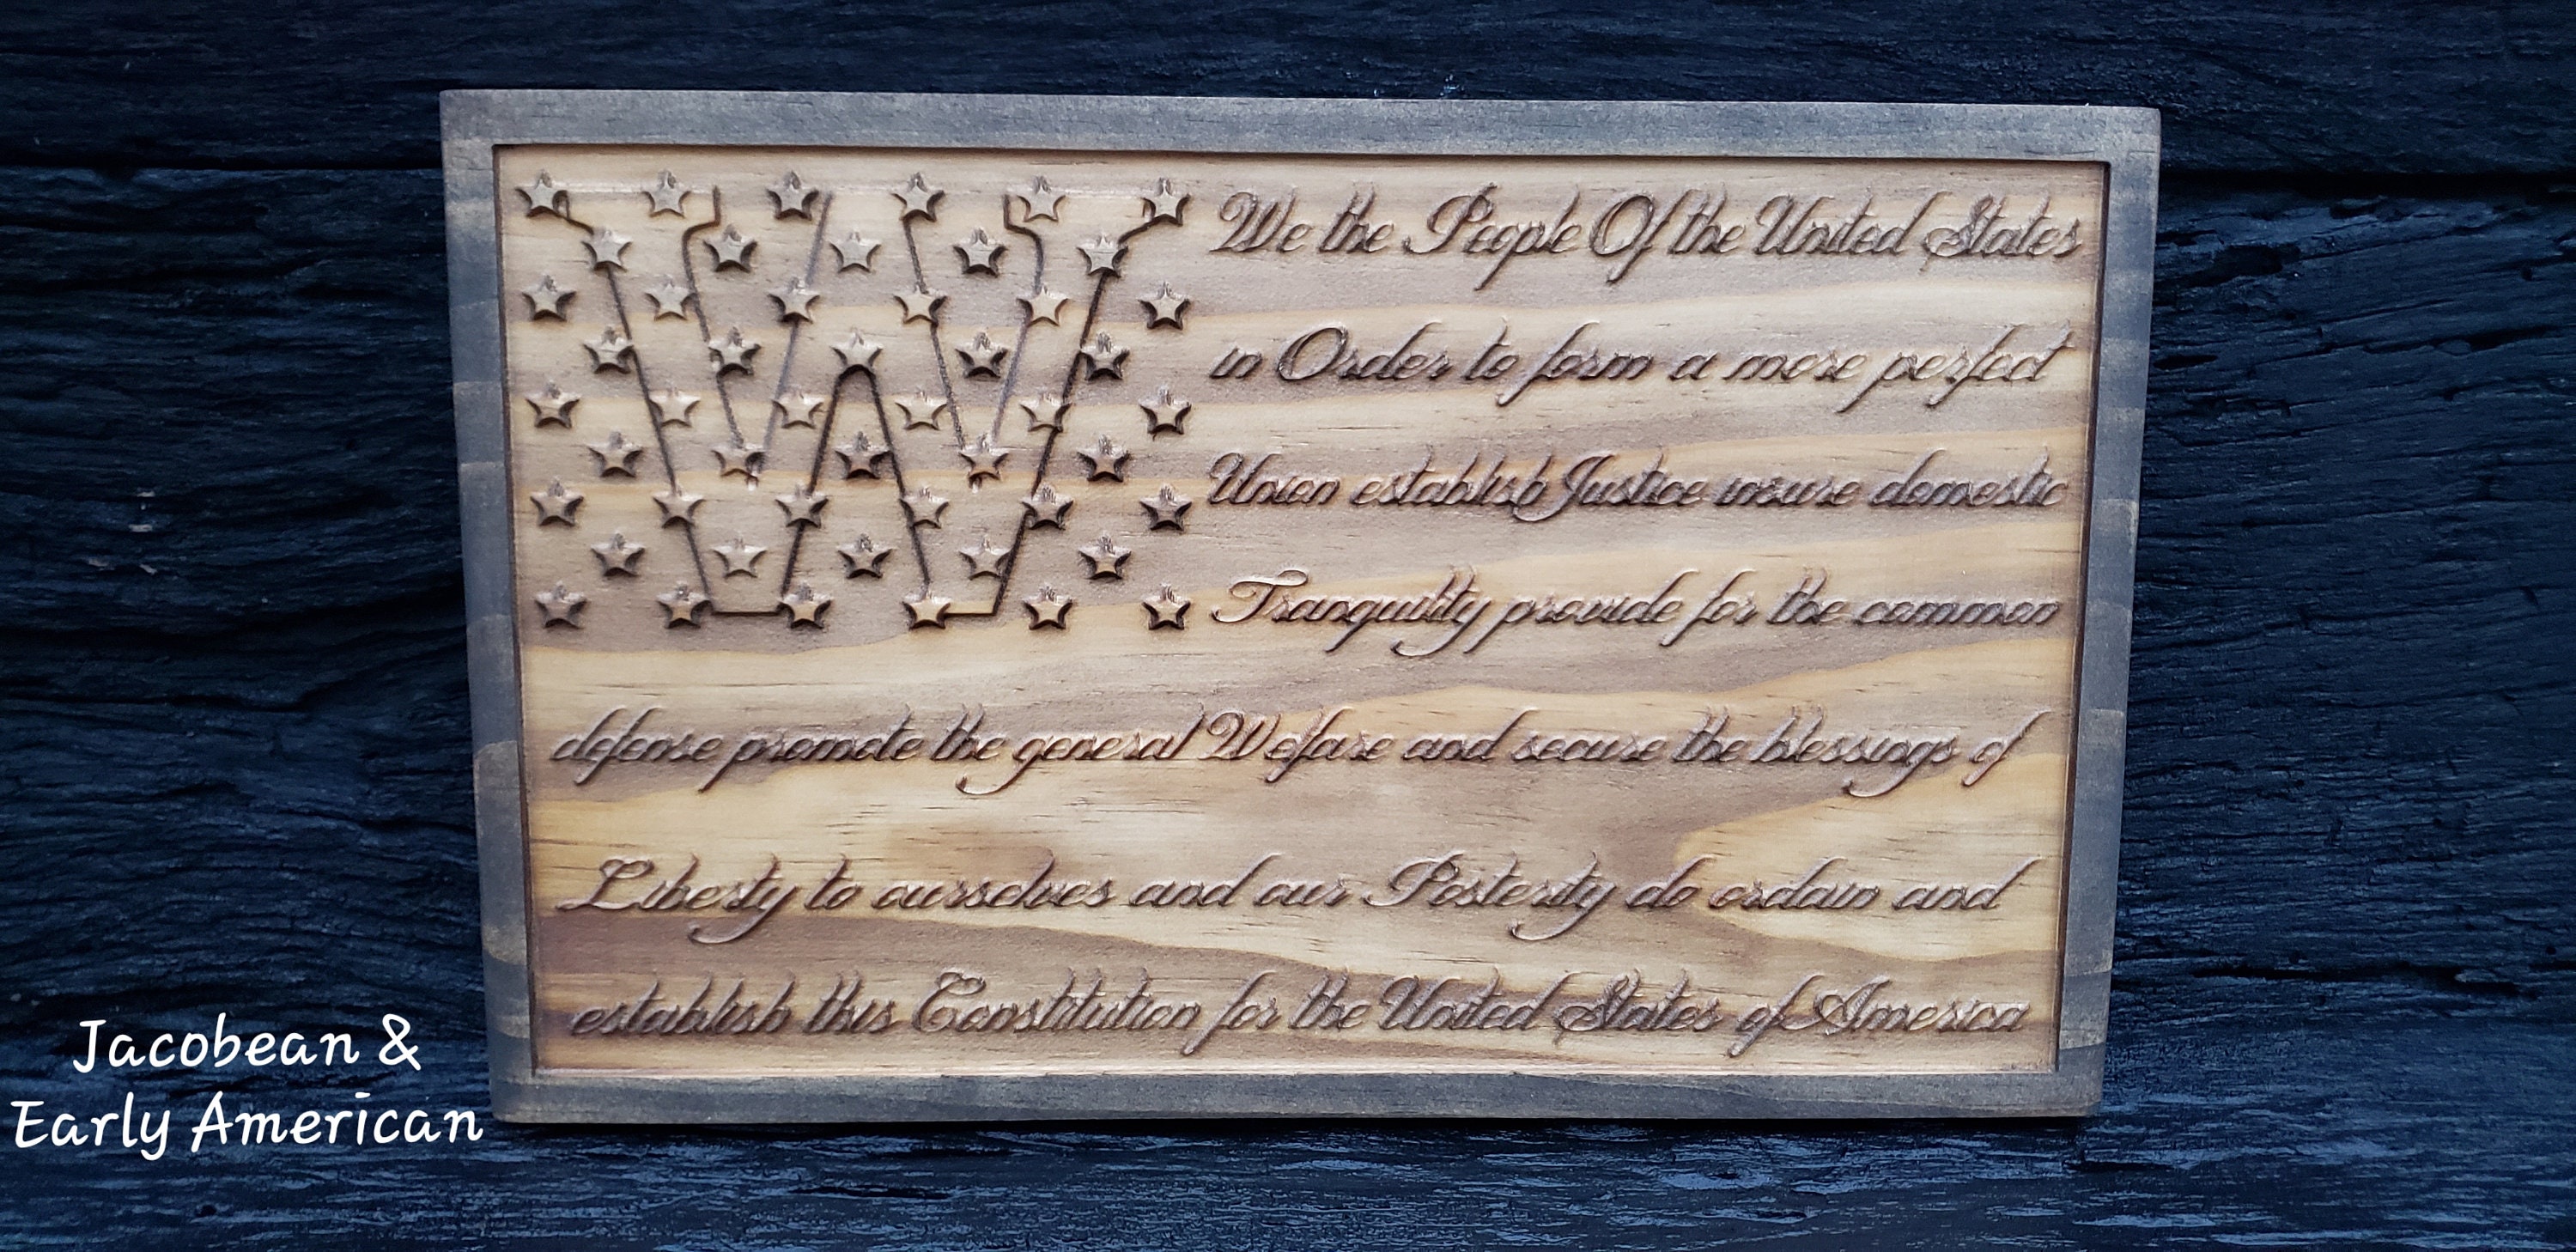 W
We the People Of the United States
in Order to form a more perfect
Union establish Justice insure domestic
Tranquility provide for the common
defense promote the general Welfare and secure the blessings of
Liberty to ourselves and our Posterity do ordain and
establish this Constitution for the United States of America
Jacobean &
Early American